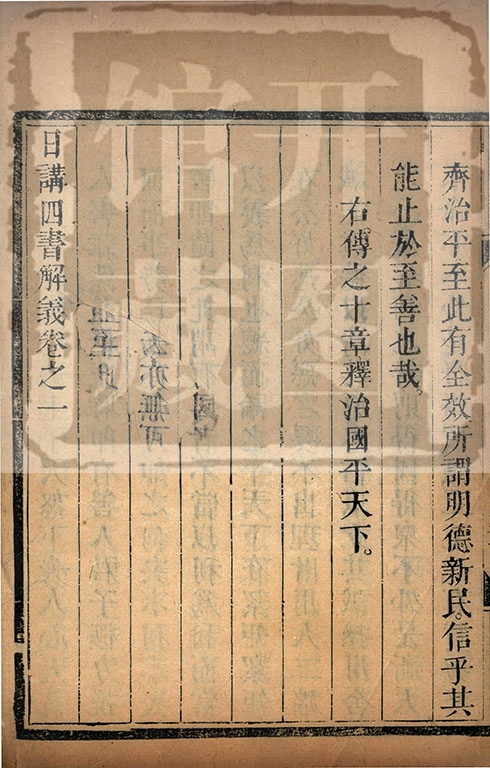 齊治平至此有全效所謂明德新民。信乎其
能止於至善也哉。
右傳之十章釋治國平天下。
日講四書解義卷之一